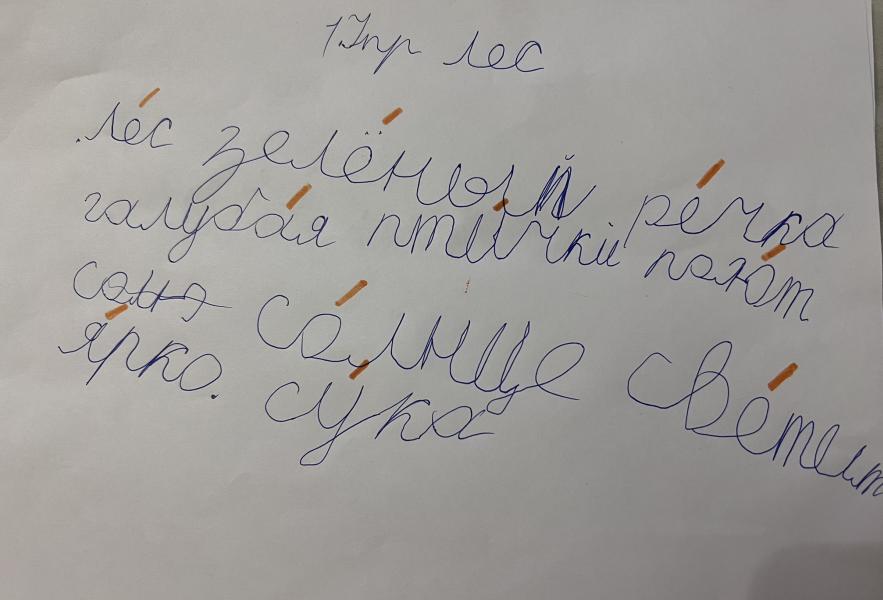 1 Упр лес
лес зелёный речка
галубая птички поют
солнце светит
ярко. сука